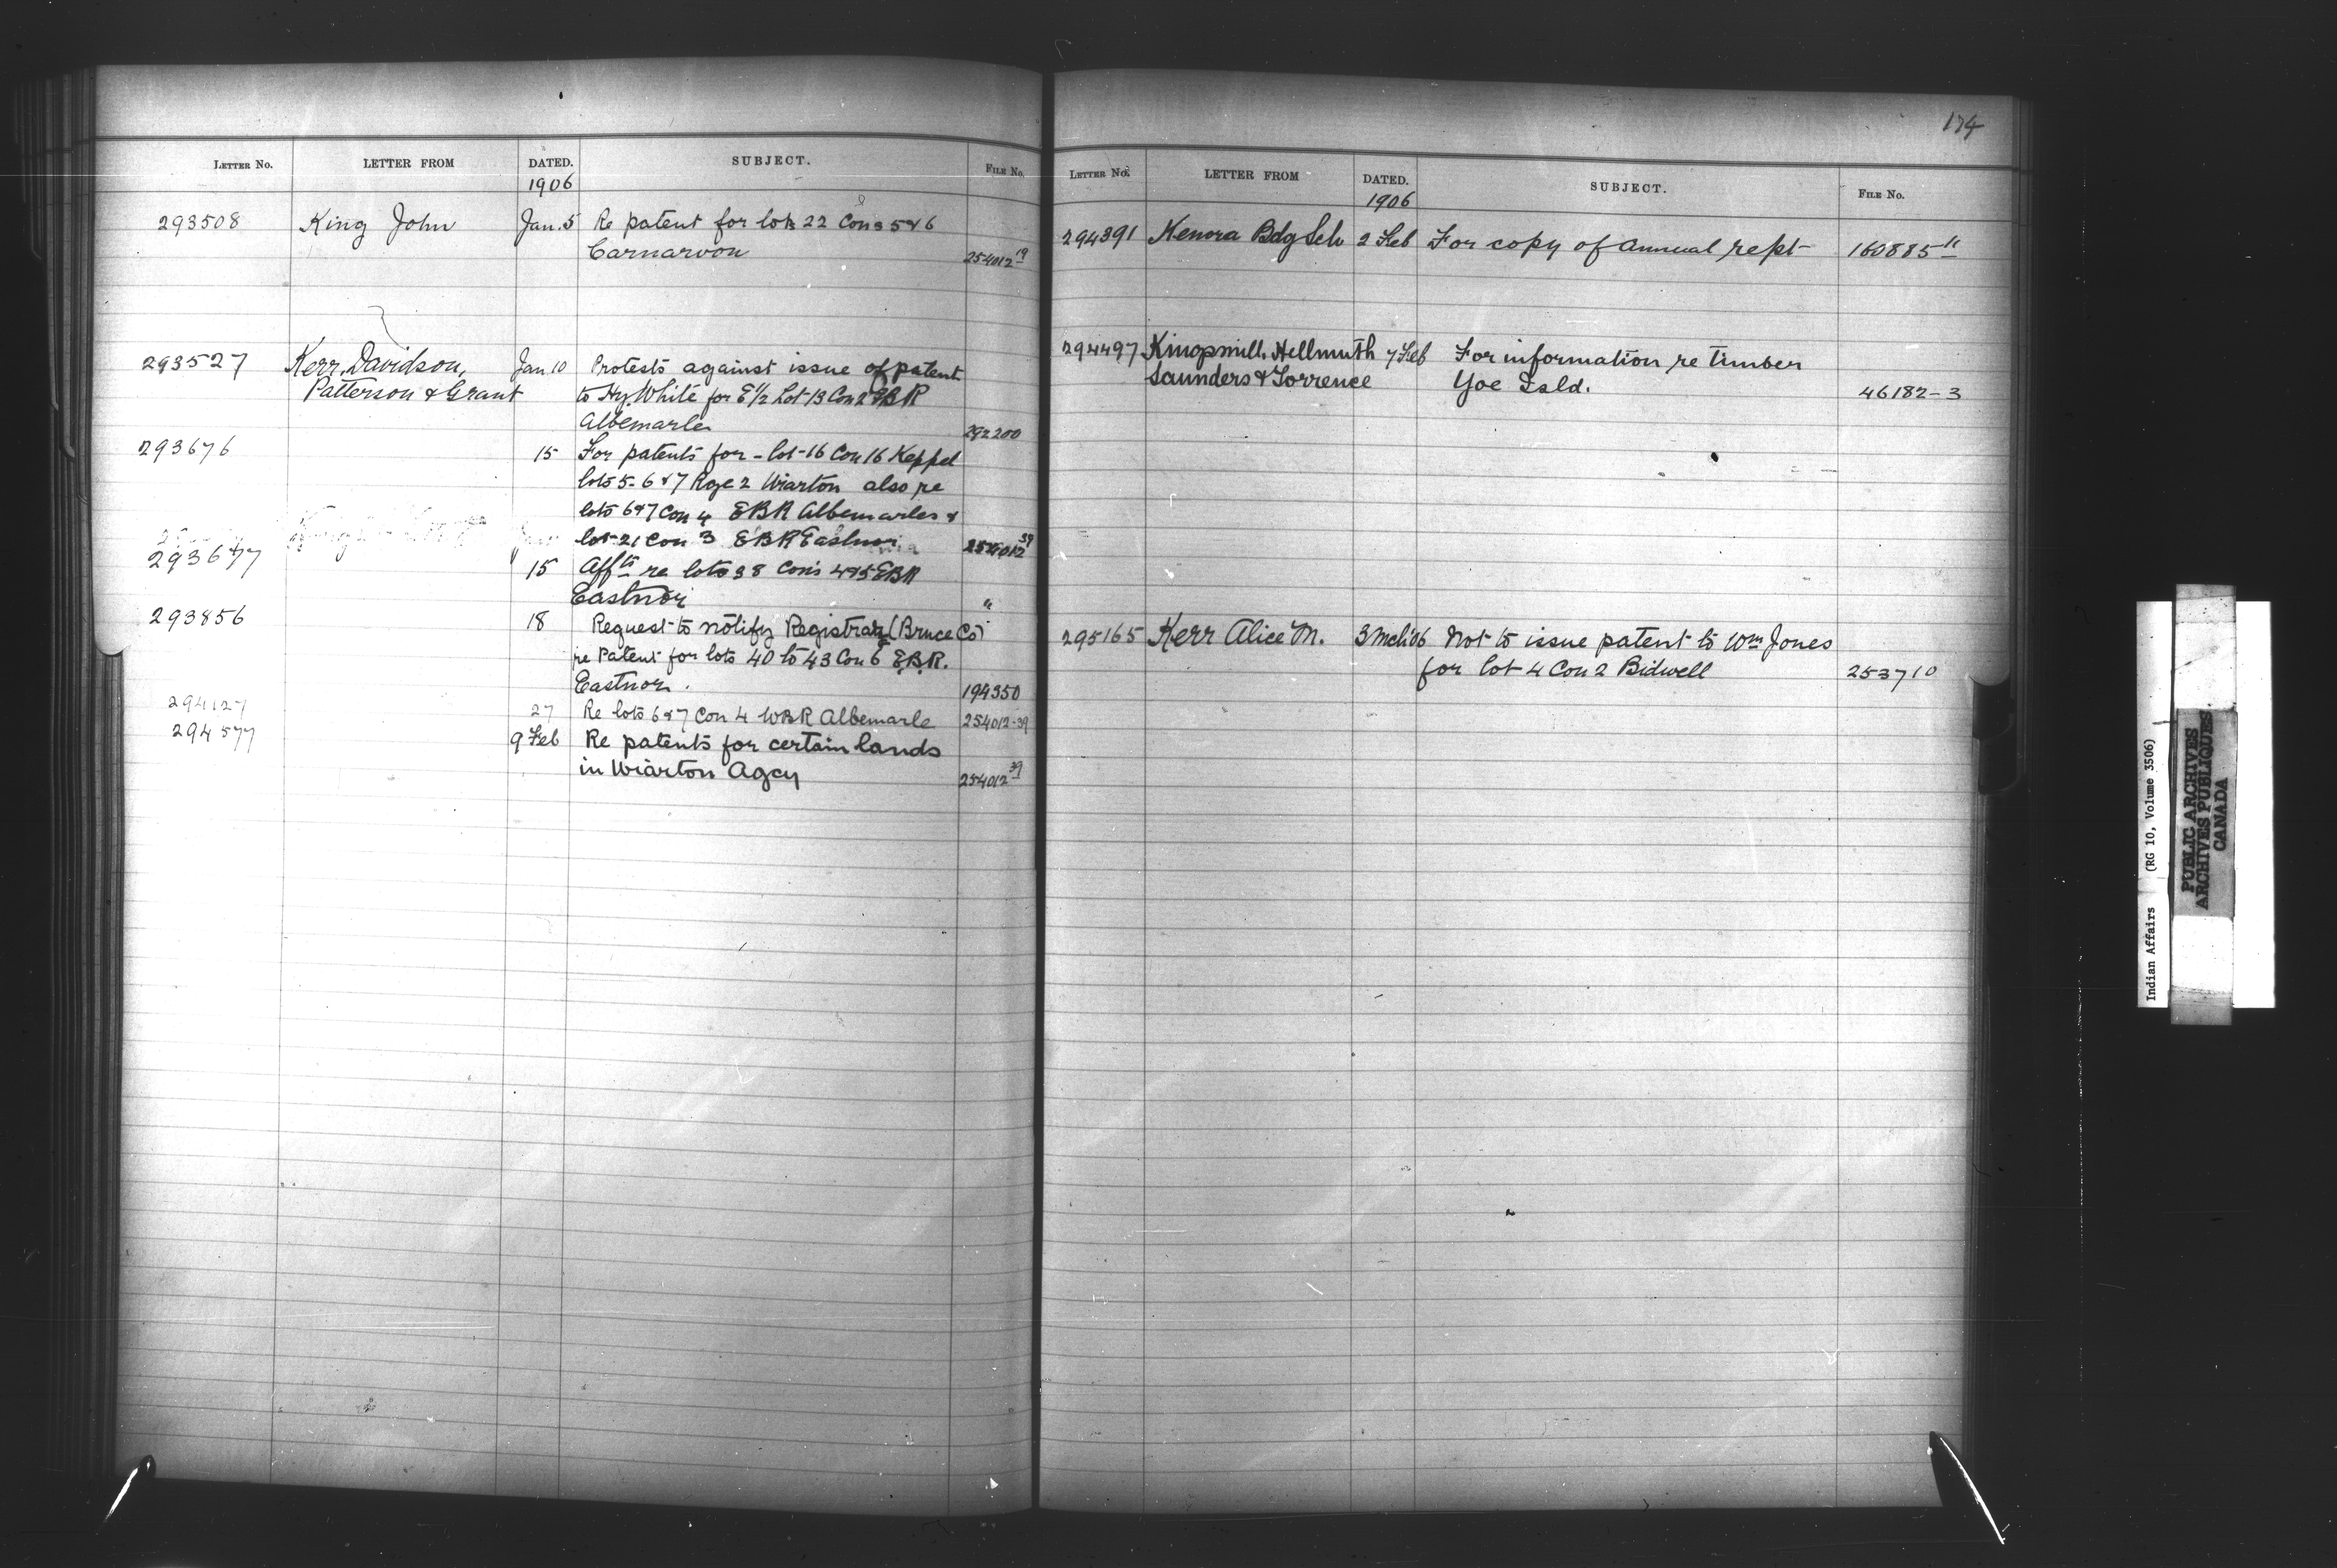 LETTER NO. LETTER FROM DATED. SUBJECT. FILE No.
1906
293508 King John Jan. 5 Re patent for lots 22 Cons 5 & 6
Carnarvon 254012 19
293527 Kerr, Davidson, Jan 10 Protests against issue of patent
Patterson & Grant to Hy White for E 1/2 Lot 13 Con 2 EBR
Albemarle 292200
293676 15 For patents for - lot 16 Con 16 Keppel
lots 5 - 6 & 7 Rge 2 Wiarton also re
lots 6 & 7 Con 4 EBR Albemarle &
lot 21 Con 3 EBR Eastnor 254012 39
293677 15 Affts re lots 38 Cons 4 & 5 EBR
Eastnor "
293856 18 Request to notify Registrar (Bruce Co)
re Patent for lots 40 to 43 Con 6 E.B.R.
Eastnor. 194350
294127 27 Re lots 6 & 7 Con 4 WBR Albemarle 254012-39
294577 9 Feb Re patents for certain lands
in Wiarton Agcy 254012 39
174
LETTER No. LETTER FROM DATED. SUBJECT. FILE No.
1906
294391 Kenora Bdg Sch 2 Feb For copy of annual rept 160885 11
294497 Kingsmill, Hellmuth 7 Feb For information re timber
Saunders & Torrence Yoe Isld. 46182-3
295165 Kerr Alice M. 3 Mch '06 Not to issue patent to Wm Jones
for lot 4 Con 2 Bidwell 253710
Indian Affairs (RG 10, Volume 3506)
PUBLIC ARCHIVES
ARCHIVES PUBLIQUES
CANADA